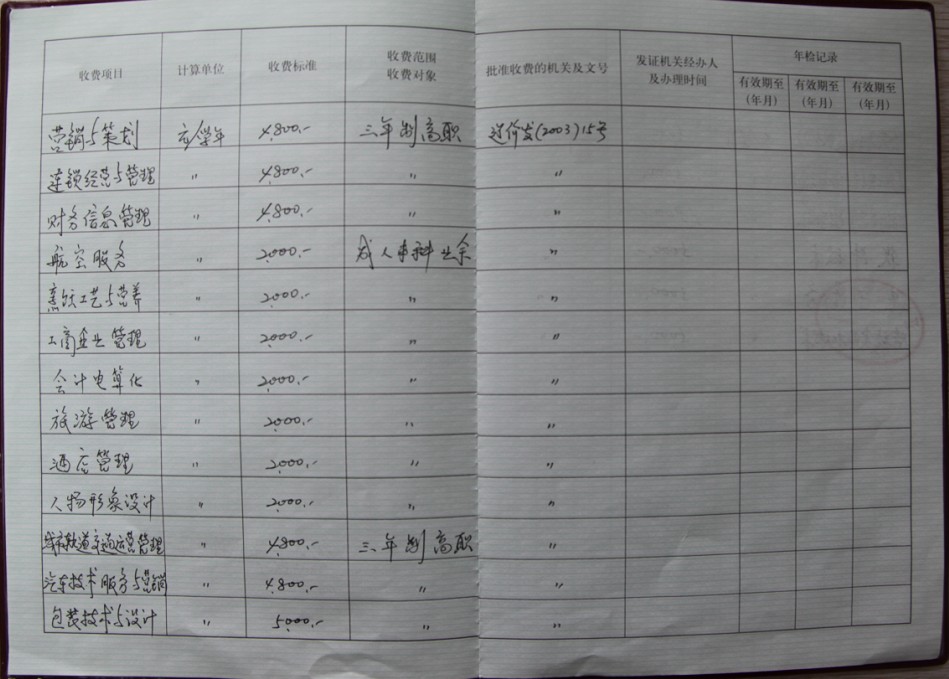 收费项目 计算单位 收费标准 收费范围 收费对象 批准收费的机关及文号 发证机关经办人及办理时间 年检记录
有效期至(年月) 有效期至(年月) 有效期至(年月)
营销与策划 元/学年 4.800.- 三年制高职 价发(2003)15号
连锁经营与管理 〃 4.800.- 〃 〃
财务信息管理 〃 4.800.- 〃 〃
航空服务 〃 2.000.- 成人专科业余 〃
烹饪工艺与营养 〃 2.000.- 〃 〃
工商企业管理 〃 2.000.- 〃 〃
会计电算化 〃 2.000.- 〃 〃
旅游管理 〃 2.000.- 〃 〃
酒店管理 〃 2.000.- 〃 〃
人物形象设计 〃 2.000.- 〃 〃
城市轨道交通运营管理 〃 4.800.- 三年制高职 〃
汽车技术服务与营销 〃 4.800.- 〃 〃
包装技术与设计 〃 5.000.- 〃 〃